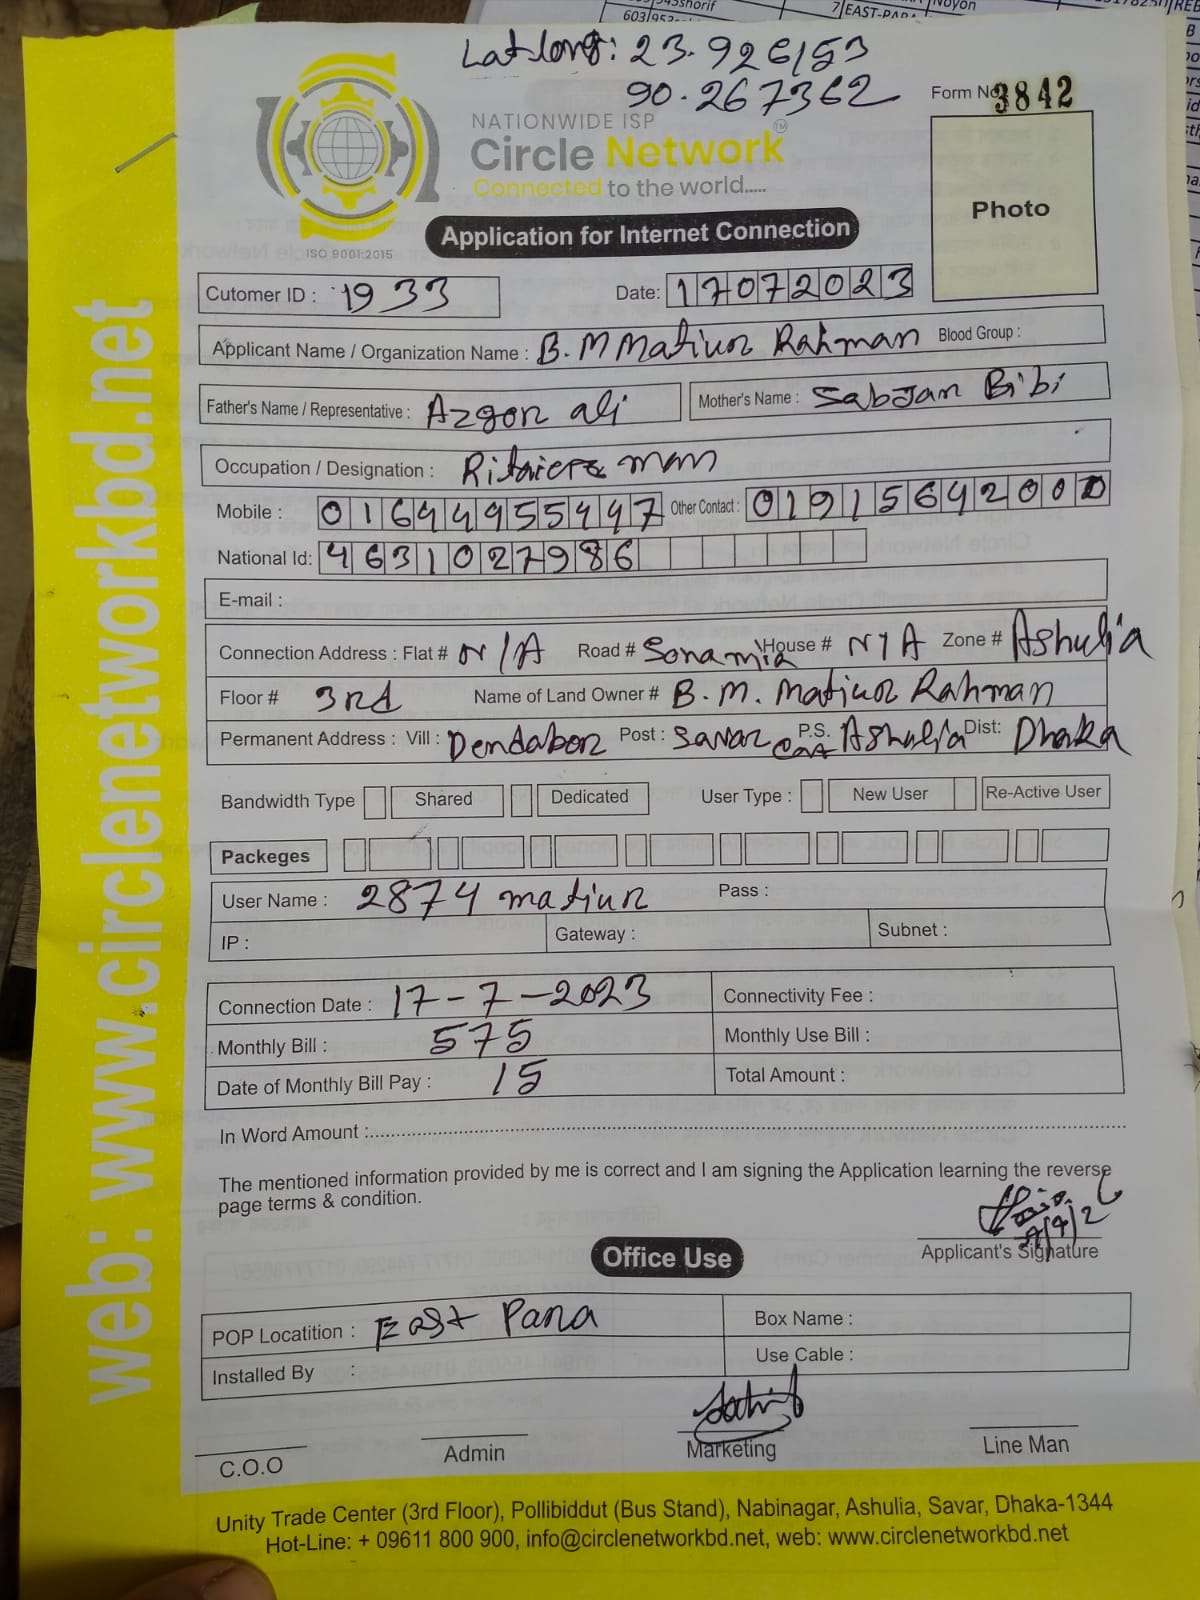 Lat long: 23.926153
90.267362
Form No. 3842
NATIONWIDE ISP
Circle Network TM
Connected to the world.....
Photo
ISO 9001:2015
Application for Internet Connection
Cutomer ID : 1933 Date: 17072023
Applicant Name / Organization Name : B. M Matiur Rahman Blood Group :
Father's Name / Representative : Azgor ali Mother's Name : SabJan Bibi
Occupation / Designation : man
Mobile : 01644955447 Other Contact : 01915642000
National Id: 4631027986
E-mail :
Connection Address : Flat # N/A Road # Sonamia House # N/A Zone # Ashulia
Floor # 3rd Name of Land Owner # B. M. Matiur Rahman
Permanent Address : Vill : Dendabor Post : Savar Cat P.S. Ashulia Dist: Dhaka
Bandwidth Type Shared Dedicated User Type : New User Re-Active User
Packeges
User Name : 2874 matiur Pass :
IP : Gateway : Subnet :
Connection Date : 17-7-2023 Connectivity Fee :
Monthly Bill : 575 Monthly Use Bill :
Date of Monthly Bill Pay : 15 Total Amount :
In Word Amount :
The mentioned information provided by me is correct and I am signing the Application learning the reverse
page terms & condition.
Applicant's Signature
Office Use
POP Locatition : East Para Box Name :
Installed By : Use Cable :
C.O.O Admin Marketing Line Man
Unity Trade Center (3rd Floor), Pollibiddut (Bus Stand), Nabinagar, Ashulia, Savar, Dhaka-1344
Hot-Line: + 09611 800 900, info@circlenetworkbd.net, web: www.circlenetworkbd.net
web: www.circlenetworkbd.net